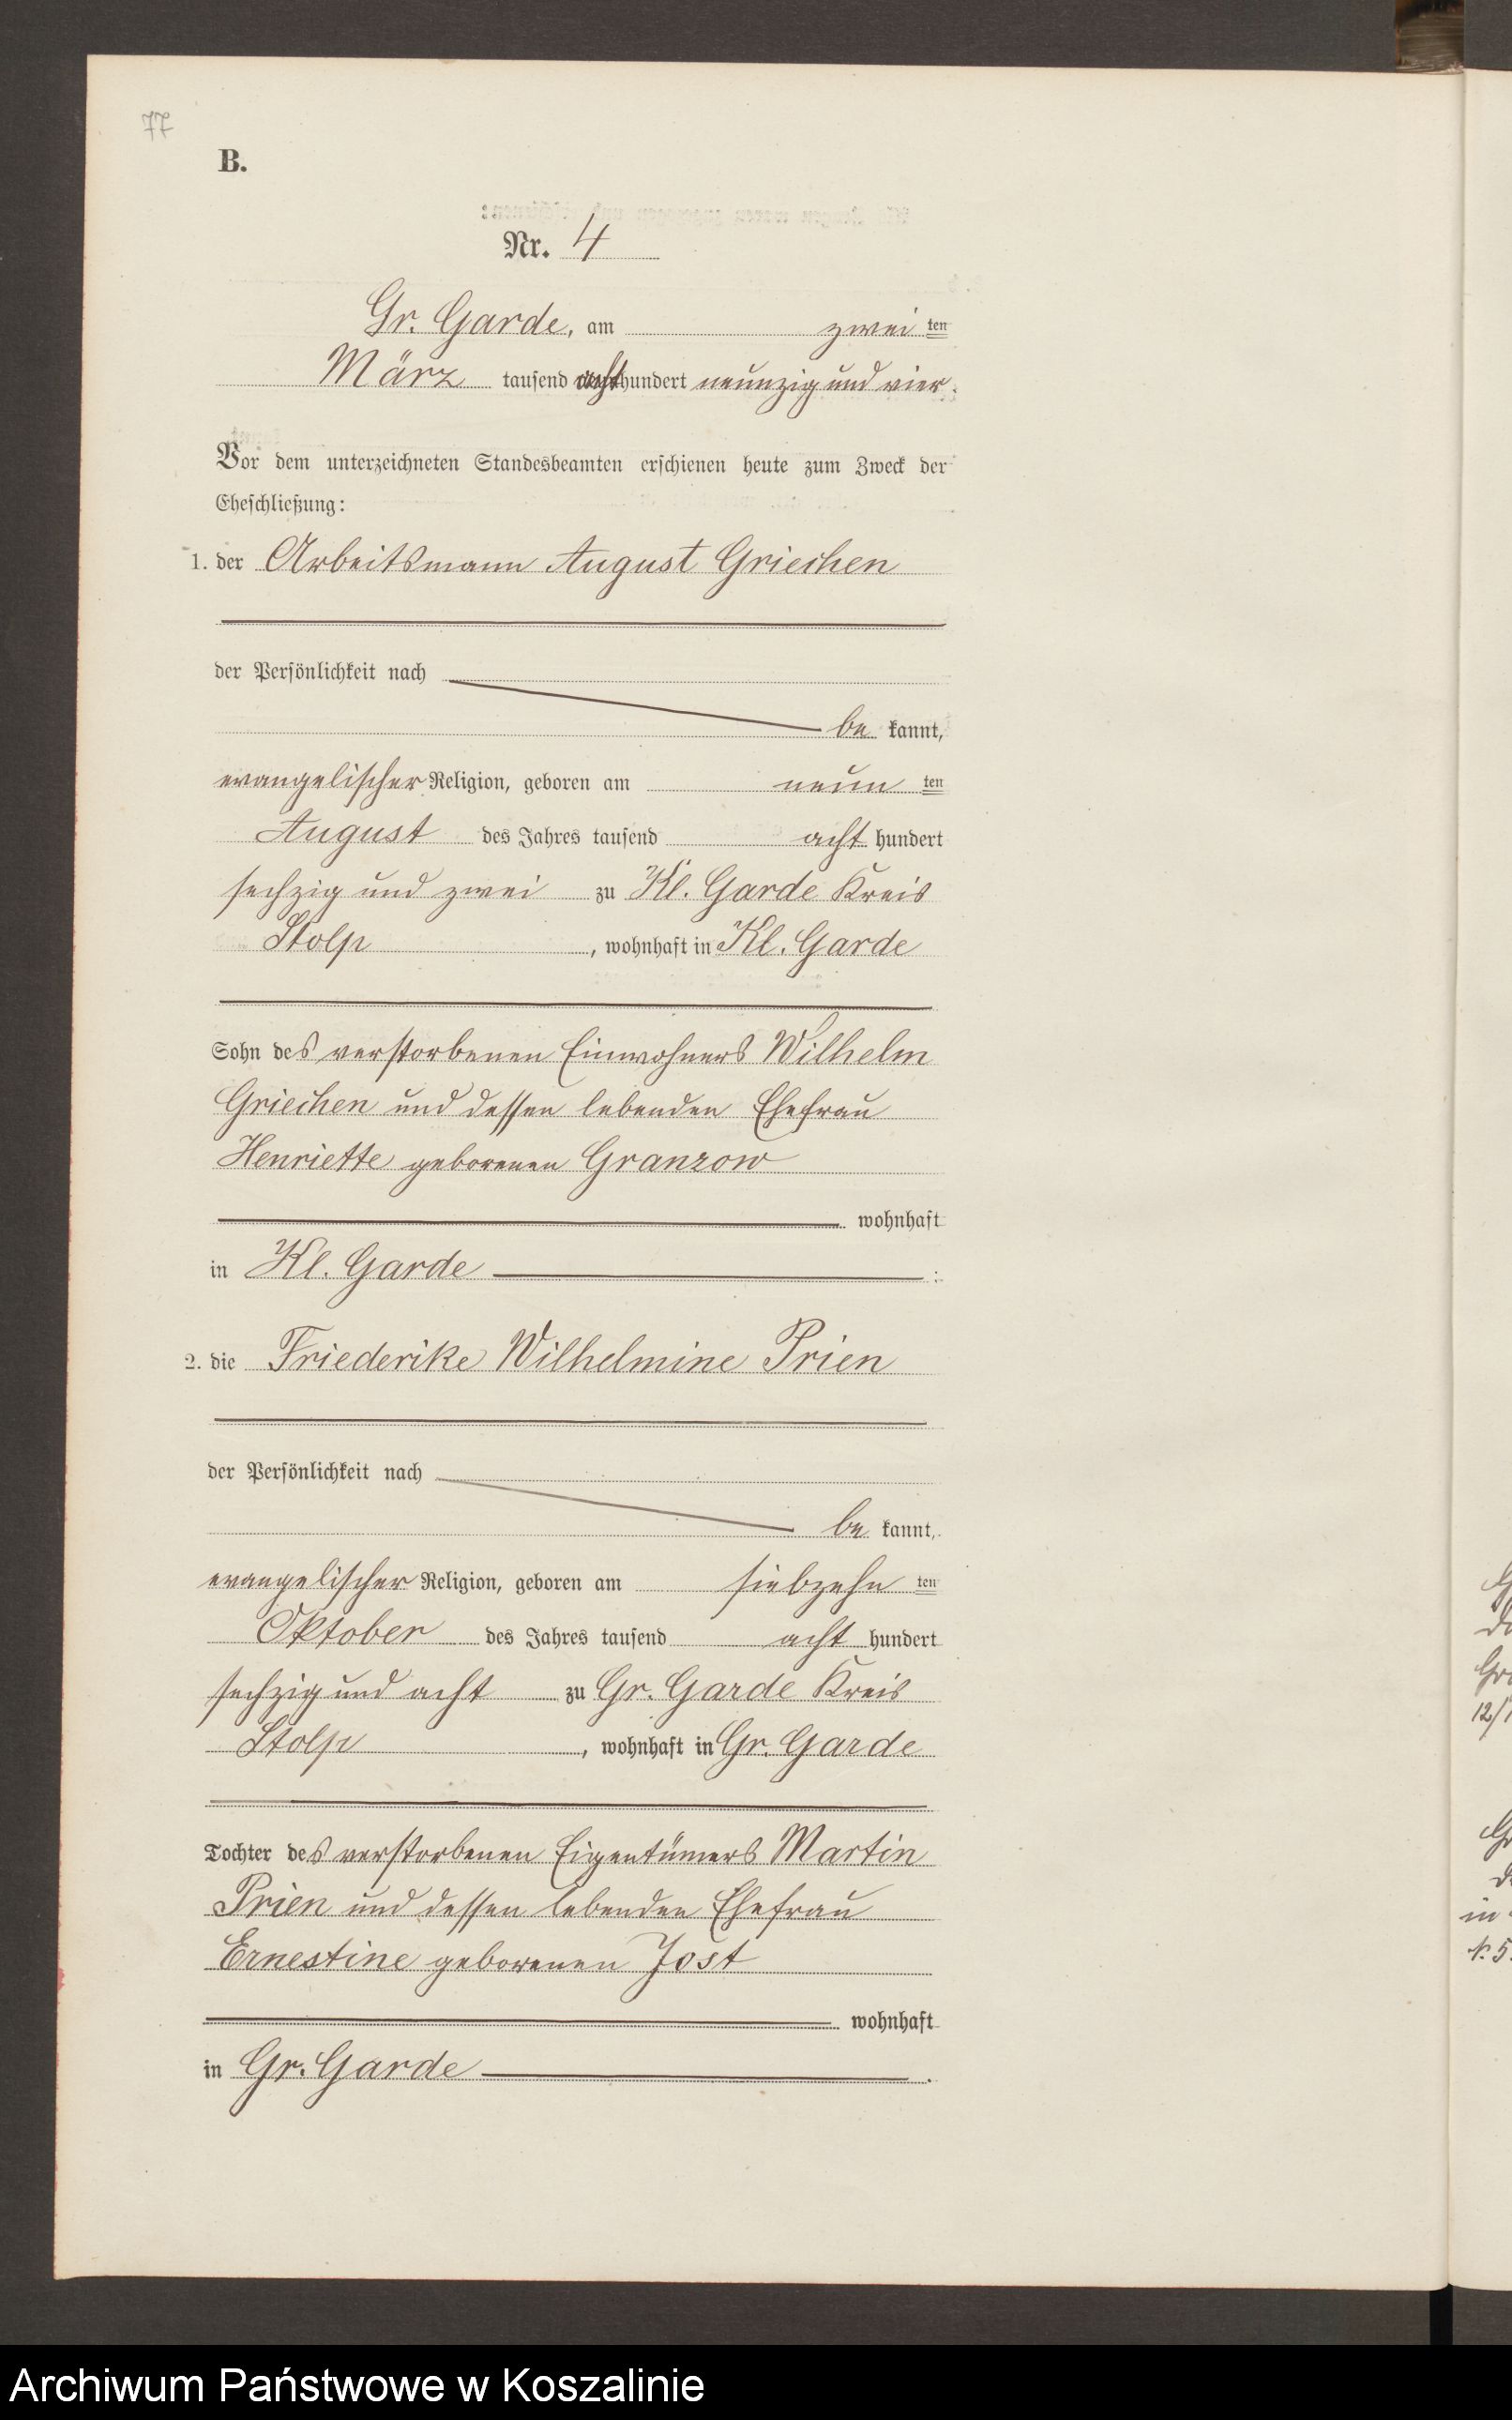 77
B.
Nr. 4
Gr. Garde, am zwei ten
März tausend achthundert neunzig und vier.
Vor dem unterzeichneten Standesbeamten erschienen heute zum Zweck der
Eheschließung:
1. der Arbeitsmann August Griechen
der Persönlichkeit nach
be kannt,
evangelischer Religion, geboren am neun ten
August des Jahres tausend acht hundert
sechzig und zwei zu Kl. Garde Kreis
Stolp, wohnhaft in Kl. Garde
Sohn des verstorbenen Einwohners Wilhelm
Griechen und dessen lebenden Ehefrau
Henriette geborenen Granzow
wohnhaft
in Kl. Garde :
2. die Friederike Wilhelmine Prien
der Persönlichkeit nach
be kannt,
evangelischer Religion, geboren am siebzehn ten
Oktober des Jahres tausend acht hundert
sechzig und acht zu Gr. Garde Kreis
Stolp, wohnhaft in Gr. Garde
Tochter des verstorbenen Eigentümers Martin
Prien und dessen lebenden Ehefrau
Ernestine geborenen Jost
wohnhaft
in Gr. Garde .
12/
in
N. 5
Archiwum Państwowe w Koszalinie